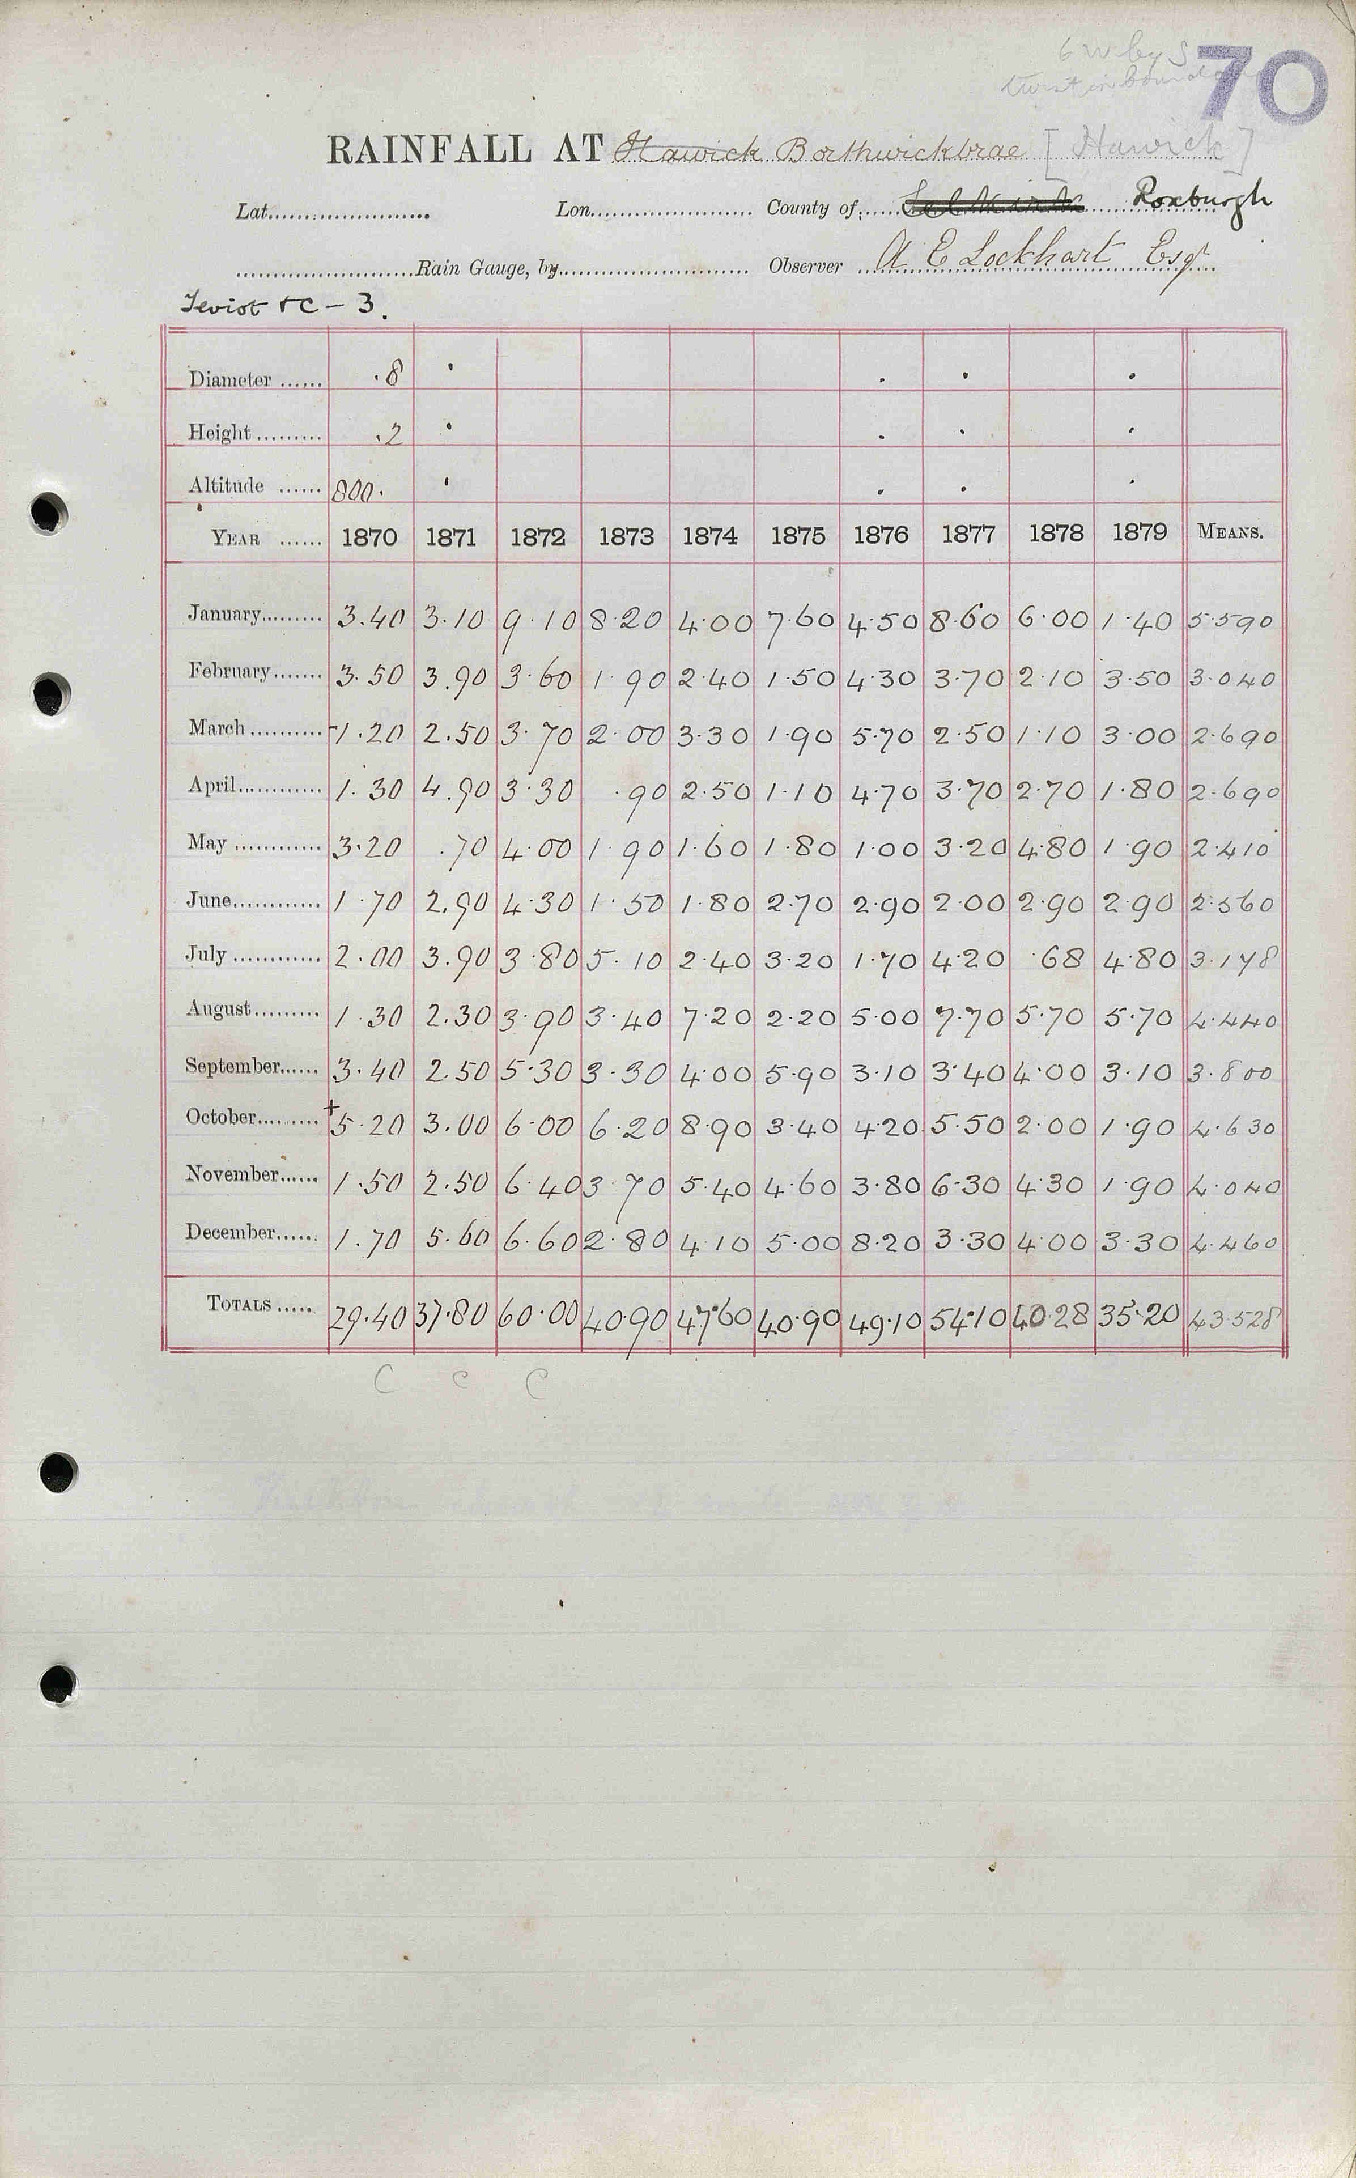 6 W by S
70
RAINFALL AT Hawick Borthwickbrae [Hawick]
Lat. Lon. County of Selkirk Roxburgh
Rain Gauge, by Observer A E Lockhart Esqr
Teviot &C - 3.
Diameter ...... .8 . . . .
Height ......... .2 . . . .
Altitude ...... 800. . . . .
YEAR ...... 1870 1871 1872 1873 1874 1875 1876 1877 1878 1879 MEANS.
January......... 3.40 3.10 9.10 8.20 4.00 7.60 4.50 8.60 6.00 1.40 5.590
February....... 3.50 3.90 3.60 1.90 2.40 1.50 4.30 3.70 2.10 3.50 3.040
March .......... 1.20 2.50 3.70 2.00 3.30 1.90 5.70 2.50 1.10 3.00 2.690
April............. 1.30 4.90 3.30 .90 2.50 1.10 4.70 3.70 2.70 1.80 2.690
May ............. 3.20 .70 4.00 1.90 1.60 1.80 1.00 3.20 4.80 1.90 2.410
June............. 1.70 2.90 4.30 1.50 1.80 2.70 2.90 2.00 2.90 2.90 2.560
July ............. 2.00 3.90 3.80 5.10 2.40 3.20 1.70 4.20 .68 4.80 3.178
August.......... 1.30 2.30 3.90 3.40 7.20 2.20 5.00 7.70 5.70 5.70 4.440
September...... 3.40 2.50 5.30 3.30 4.00 5.90 3.10 3.40 4.00 3.10 3.800
October.......... +5.20 3.00 6.00 6.20 8.90 3.40 4.20 5.50 2.00 1.90 4.630
November...... 1.50 2.50 6.40 3.70 5.40 4.60 3.80 6.30 4.30 1.90 4.040
December....... 1.70 5.60 6.60 2.80 4.10 5.00 8.20 3.30 4.00 3.30 4.460
TOTALS ..... 29.40 37.80 60.00 40.90 47.60 40.90 49.10 54.10 40.28 35.20 43.528
C C C